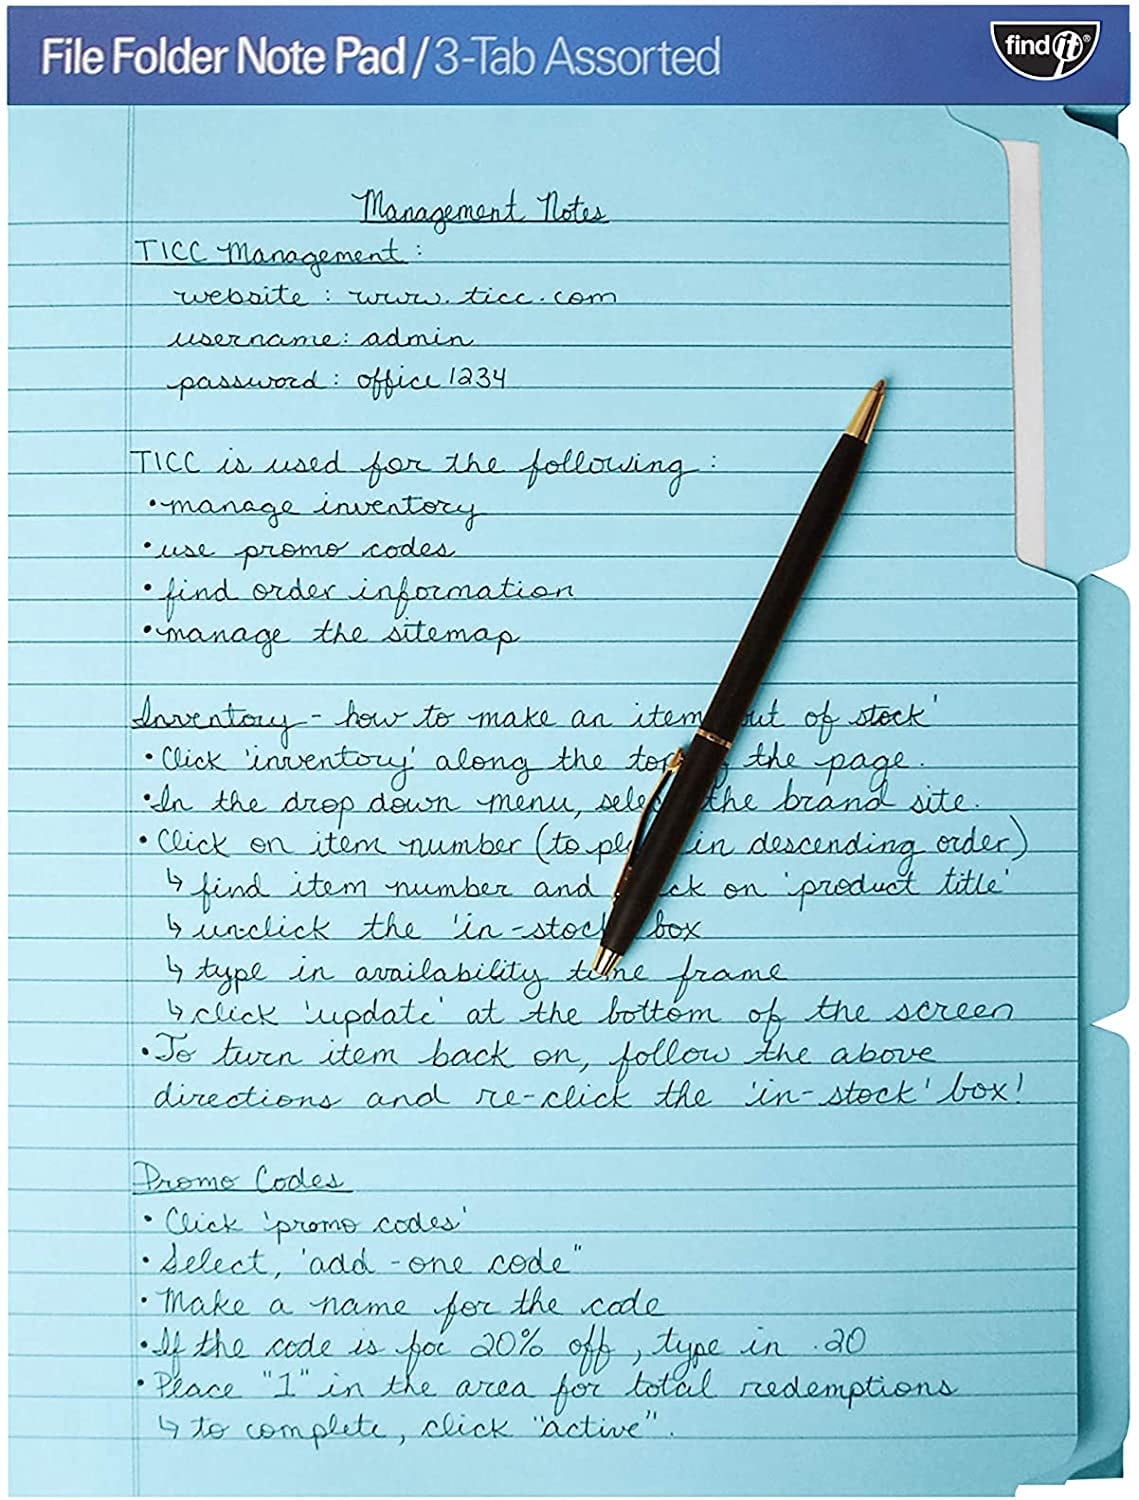 File Folder Note Pad / 3-Tab Assorted
find it®
Management Notes
TICC Management :
website : www.ticc.com
username: admin
password : office1234
TICC is used for the following :
• manage inventory
• use promo codes
• find order information
• manage the sitemap
Inventory - how to make an item out of stock'
• Click 'inventory' along the top the page.
• In the drop down menu, select the brand site.
• Click on item number (to place in descending order)
↳ find item number and click on 'product title'
↳ unclick the 'in-stock' box
↳ type in availability time frame
↳ click 'update' at the bottom of the screen
• To turn item back on, follow the above
directions and re-click the 'in-stock' box!
Promo Codes
• Click 'promo codes'
• Select, 'add-one code"
• Make a name for the code
• If the code is for 20% off, type in .20
• Place "1" in the area for total redemptions
↳ to complete, click "active".